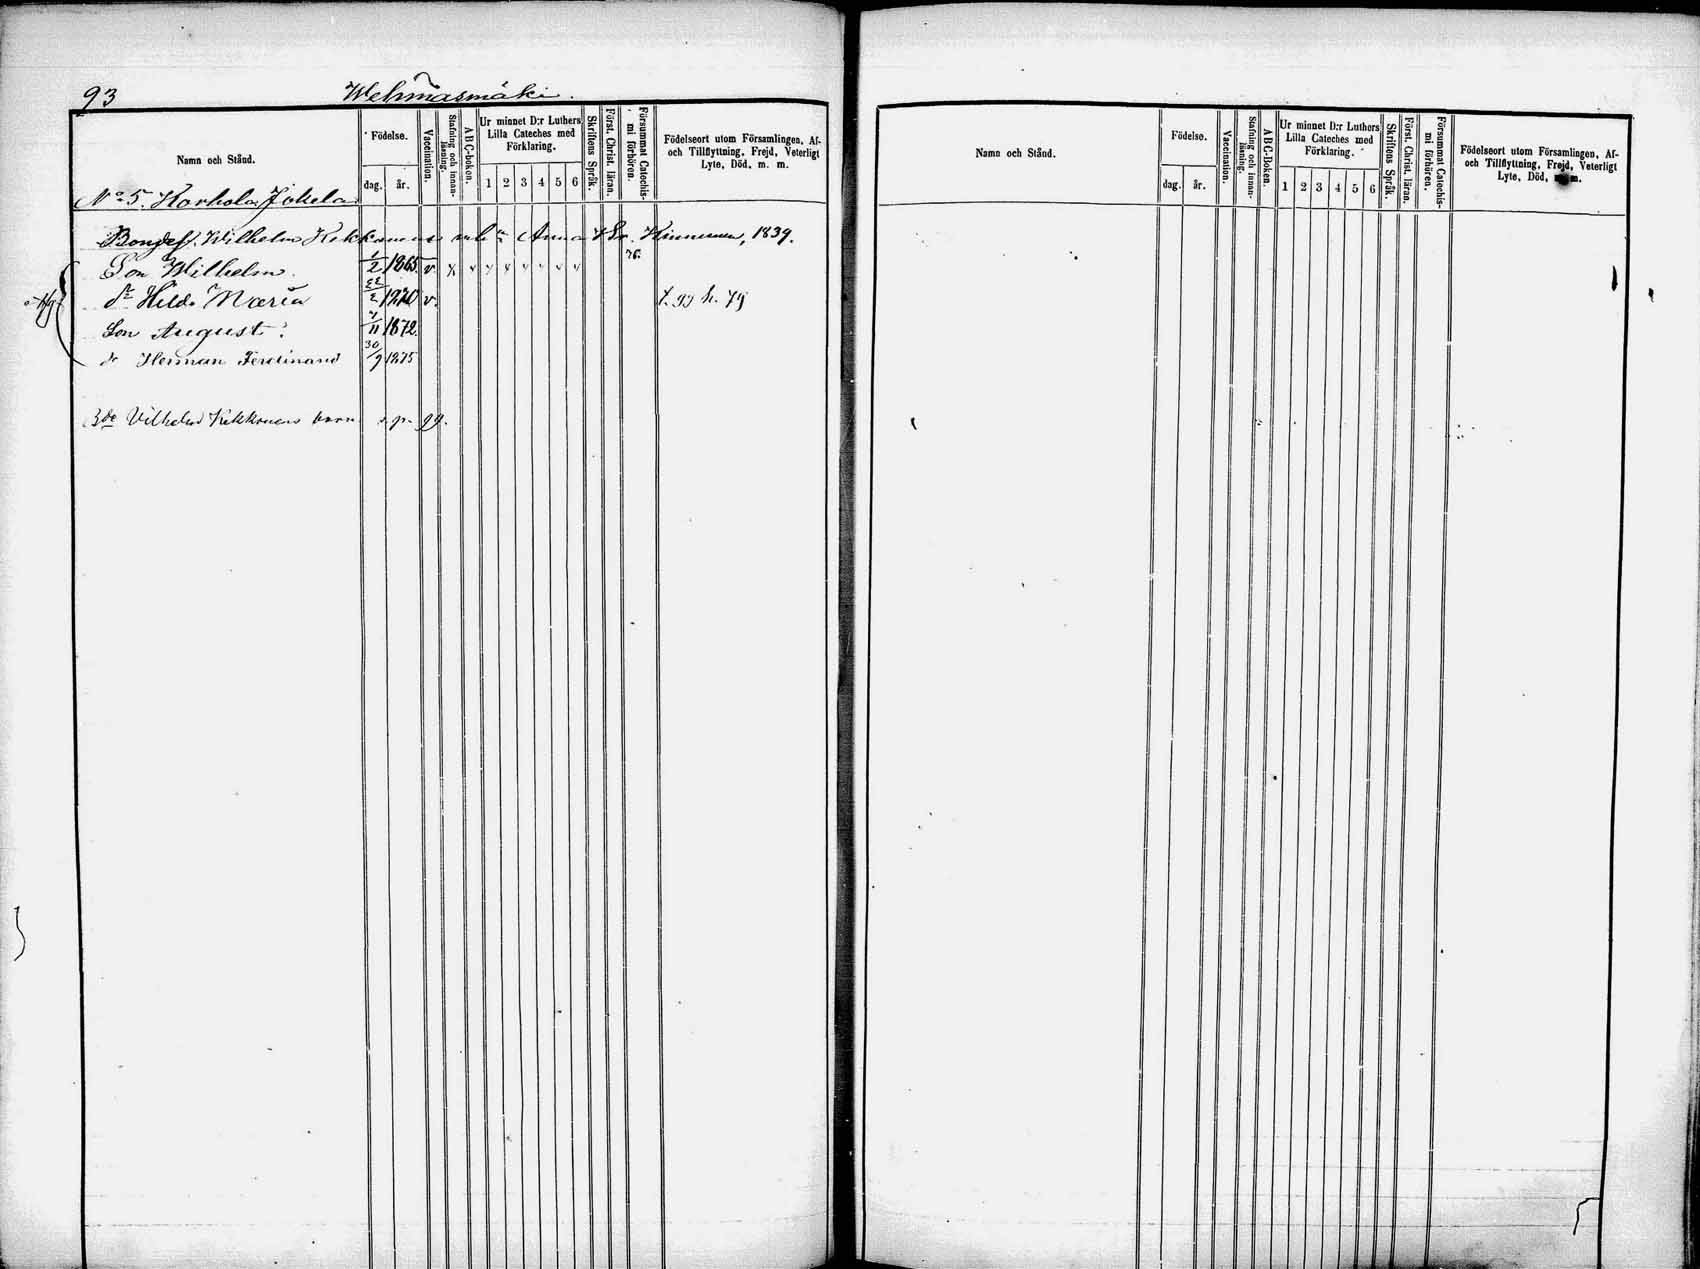 93 Wehmasmäki.
Namn och Stånd.
Födelse.
dag. år.
Vaccination.
Stafning och innan-
läsning.
ABC-boken.
Ur minnet D:r Luthers
Lilla Cateches med
Förklaring.
1 2 3 4 5 6
Skriftens Språk.
Först. Christ. läran.
Försummat Catechis-
mi förhören.
Födelseort utom Församlingen, Af-
och Tillflyttning, Frejd, Veterligt
Lyte, Död, m. m.
No 5. Korhola Jokela
Wilhelm Kekkonens Anna Kinnunen, 1839.
Son Wilhelm. 1/2 1865. v.
dr Hilda Maria 22/2 1870 v.
Son August. 7/11 1872.
do Herman Ferdinand 30/9 1875
Vilhelm Kekkonens barn s. p. 99.
Namn och Stånd.
Födelse.
dag. år.
Vaccination.
Stafning och innan-
läsning.
ABC-Boken.
Ur minnet D:r Luthers
Lilla Cateches med
Förklaring.
1 2 3 4 5 6
Skriftens Språk.
Först. Christ. läran.
Försummat Catechis-
mi förhören.
Födelseort utom Församlingen, Af-
och Tillflyttning, Frejd, Veterligt
Lyte, Död, m.